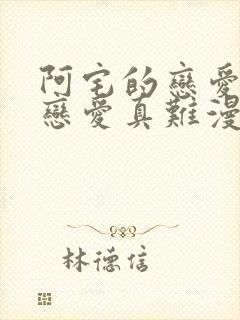 阿宅的戀愛
戀愛真難漫
林德信